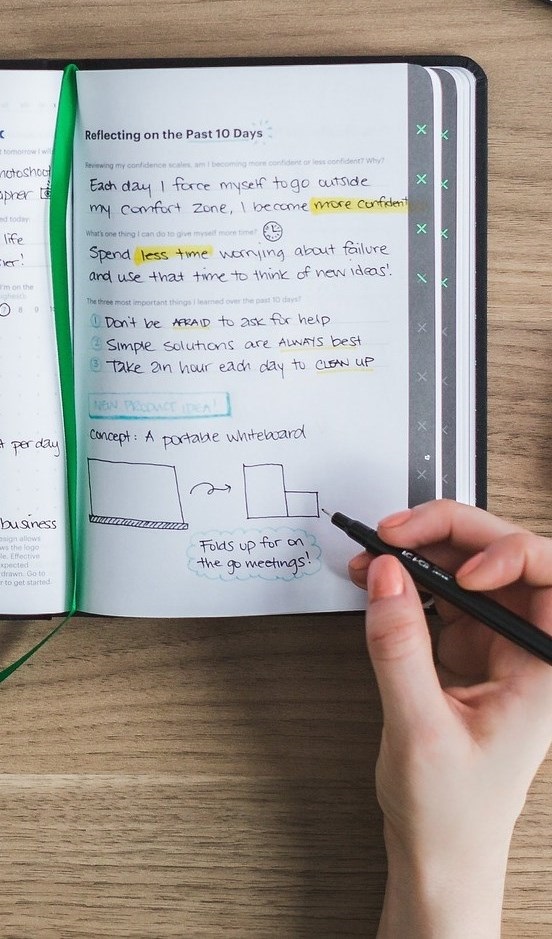 tomorrow I wi
photoshoot
apher
ed today:
life
ier!
I'm on the
7 8 9
t per day
business
esign allows
ws the logo
le. Effective
expected
drawn. Go to
r to get started.
Reflecting on the Past 10 Days
Reviewing my confidence scales, am I becoming more confident or less confident? Why?
Each day I force myself to go outside
my comfort zone, I become more confident
What's one thing I can do to give myself more time?
Spend less time worrying about failure
and use that time to think of new ideas!
The three most important things I learned over the past 10 days?
1 Don't be AFRAID to ask for help
2 Simple solutions are ALWAYS best
3 Take an hour each day to CLEAN UP
NEW PRODUCT IDEA!
concept: A portable whiteboard
Folds up for on
the go meetings!